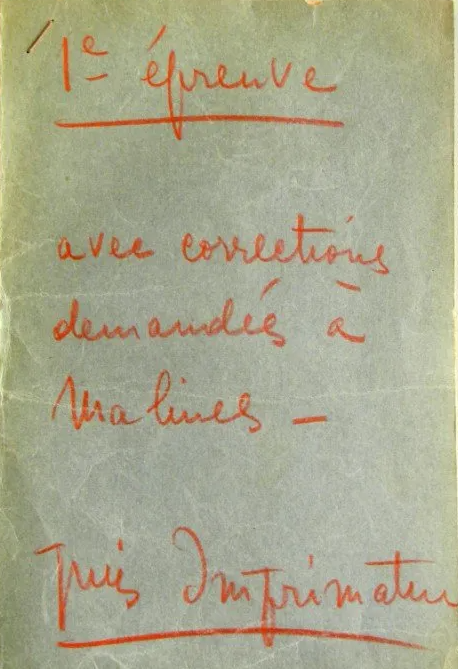 1e épreuve
avec corrections
demandés à
Malines —
puis Imprimatu